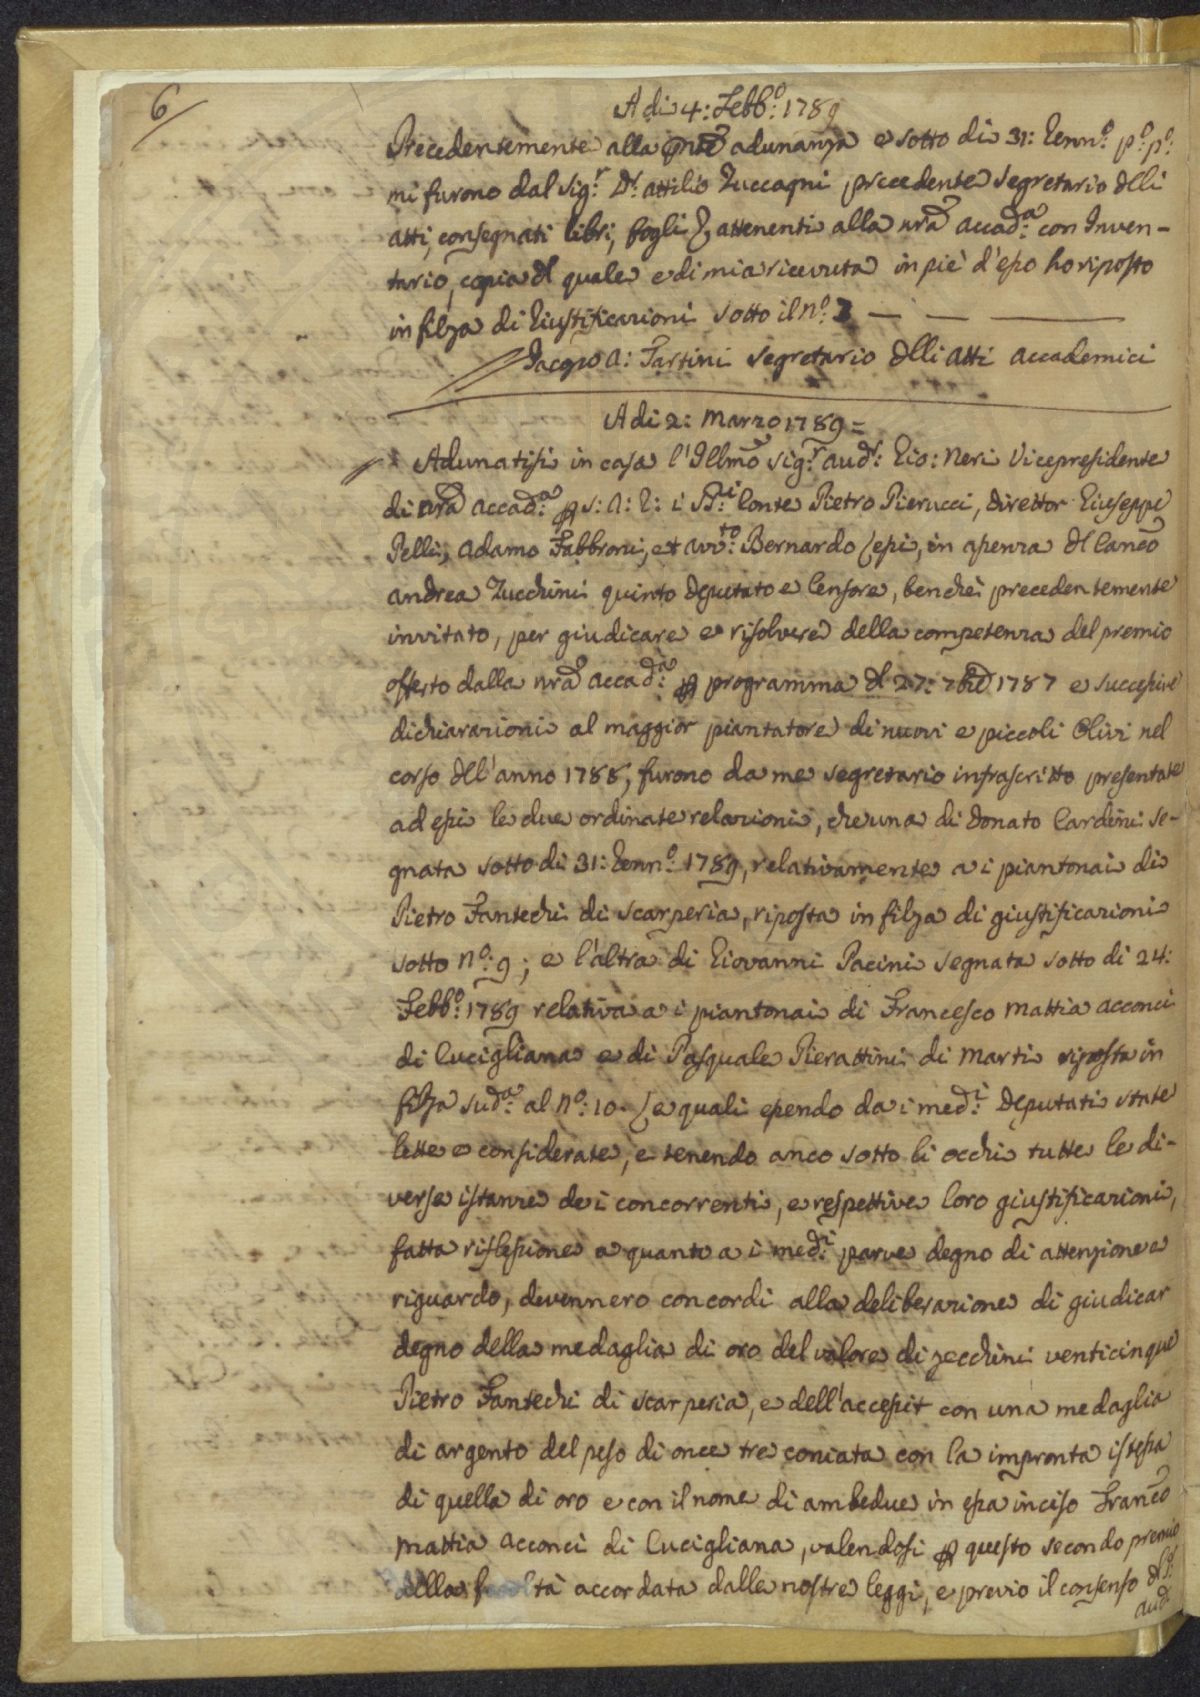 6
A di 4: Febb.o: 1789
Precedentemente alla pnte adunanza e sotto di 31: Genn.o p.o p.o:
mi furono dal Sig.r D.r Attilio Zuccagni precedente Segretario delli
atti, consegnati libri, fogli &, attenenti alla nra Accad.a: con Inven-
tario, copia del quale e di mia ricevuta in piè d'esso ho riposto
in filza di Giustificazioni sotto il n.o: 7 — — —
Jacopo A: Tartini Segretario delli Atti Accademici
A di 2: Marzo 1789 =
Adunatisi in casa l'Illmo Sig.r Aud.r: Gio: Neri Vicepresidente
di nra Accad.a: per S: A: R: i SS.ri Conte Pietro Pierucci, Direttor Giuseppe
Pelli, Adamo Fabbroni, et Avv.to: Bernardo Lessi, in assenza del Canco
Andrea Zucchini quinto Deputato e Censore, benchè precedentemente
invitato, per giudicare e risolvere della competenza del premio
offerto dalla nra Accad.a: per programma del 27: 7bre 1787 e successive
dichiarazioni al maggior piantatore di nuovi e piccoli Olivi nel
corso dell'anno 1788, furono da me Segretario infrascritto presentate
ad essi le due ordinate relazioni, che una di Donato Cardini se-
gnata sotto di 31: Genn.o: 1789, relativamente a i piantonai di
Pietro Fantechi di Scarperia, riposta in filza di giustificazioni
sotto n.o: 9; e l'altra di Giovanni Pacini segnata sotto di 24:
Febb.o: 1789 relativa a i piantonai di Francesco Mattia Acconci
di Cucigliana e di Pasquale Pierattini di Marti riposta in
filza sud.a: al n.o: 10. Le quali essendo da i med.i: Deputati state
lette e considerate, e tenendo anco sotto li occhi tutte le di-
verse istanze de i concorrenti, e respettive loro giustificazioni,
fatta riflessione a quanto a i med.i: parve degno di attenzione e
riguardo, devennero concordi alla deliberazione di giudicar
degno della medaglia di oro del valore di zecchini venticinque
Pietro Fantechi di Scarperia, e dell'accessit con una medaglia
di argento del peso di once tre coniata con la impronta istessa
di quella di oro e con il nome di ambedue in essa inciso Franco
Mattia Acconci di Cucigliana, valendosi per questo secondo premio
della facoltà accordata dalle nostre leggi, e previo il consenso del S.r:
Aud.